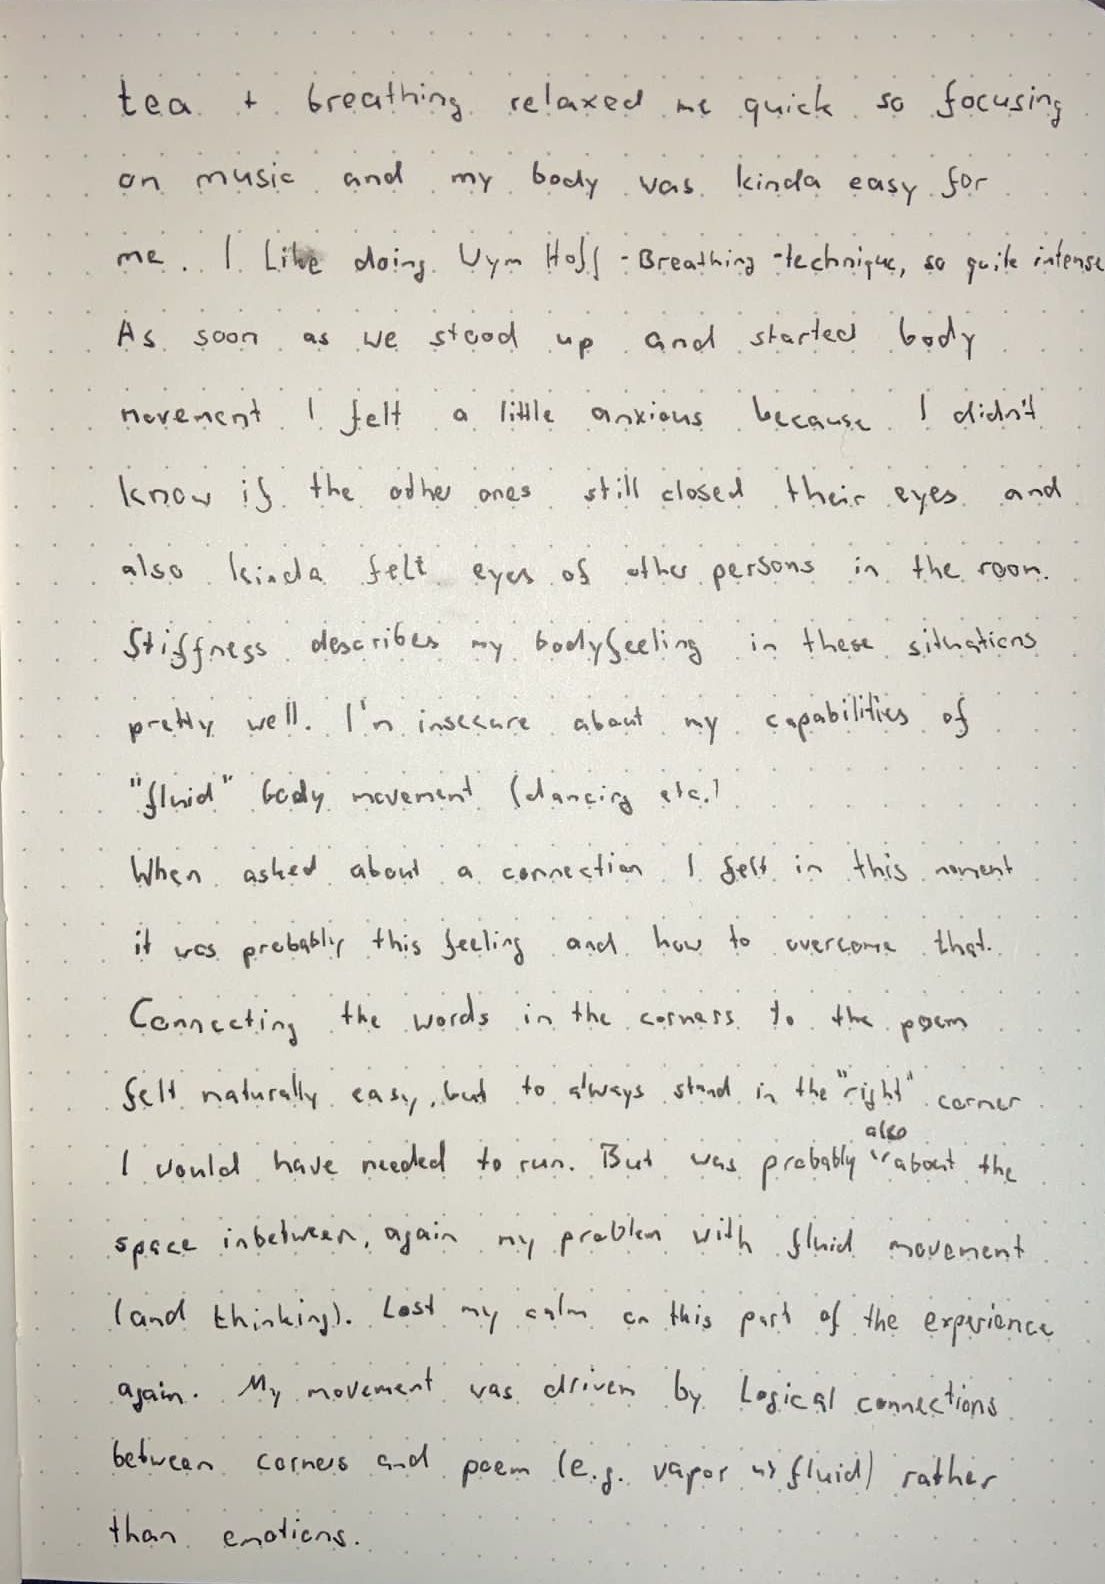 tea + breathing relaxed me quick so focusing
on music and my body was kinda easy for
me. I Like doing Wym Hoff-Breathing-technique, so quite intense
As soon as we stood up and started body
movement I felt a little anxious because I didn't
know if the other ones still closed their eyes and
also kinda felt eyes of other persons in the room.
Stiffness describes my bodyfeeling in these situations
pretty well. I'm insecure about my capabilities of
"fluid" body movement (dancing etc.)
When asked about a connection I felt in this moment
it was probably this feeling and how to overcome that.
Connecting the words in the corners to the poem
felt naturally easy, but to always stand in the "right" corner
also
I would have needed to run. But was probably about the
space inbetween, again my problem with fluid movement
(and thinking). Lost my calm on this part of the experience
again. My movement was driven by Logical connections
between corners and poem (e.g. vapor => fluid) rather
than emotions.